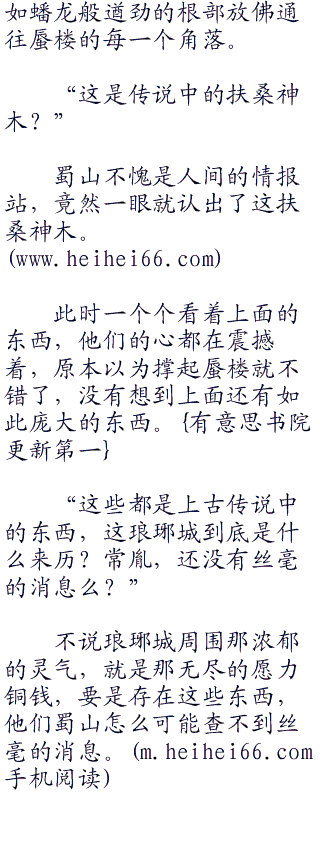 如蟠龙般遒劲的根部放佛通
往蜃楼的每一个角落。
“这是传说中的扶桑神
木？”
蜀山不愧是人间的情报
站，竟然一眼就认出了这扶
桑神木。
(www.heihei66.com)
此时一个个看着上面的
东西，他们的心都在震撼
着，原本以为撑起蜃楼就不
错了，没有想到上面还有如
此庞大的东西。{有意思书院
更新第一}
“这些都是上古传说中
的东西，这琅琊城到底是什
么来历？常胤，还没有丝毫
的消息么？”
不说琅琊城周围那浓郁
的灵气，就是那无尽的愿力
铜钱，要是存在这些东西，
他们蜀山怎么可能查不到丝
毫的消息。(m.heihei66.com
手机阅读)